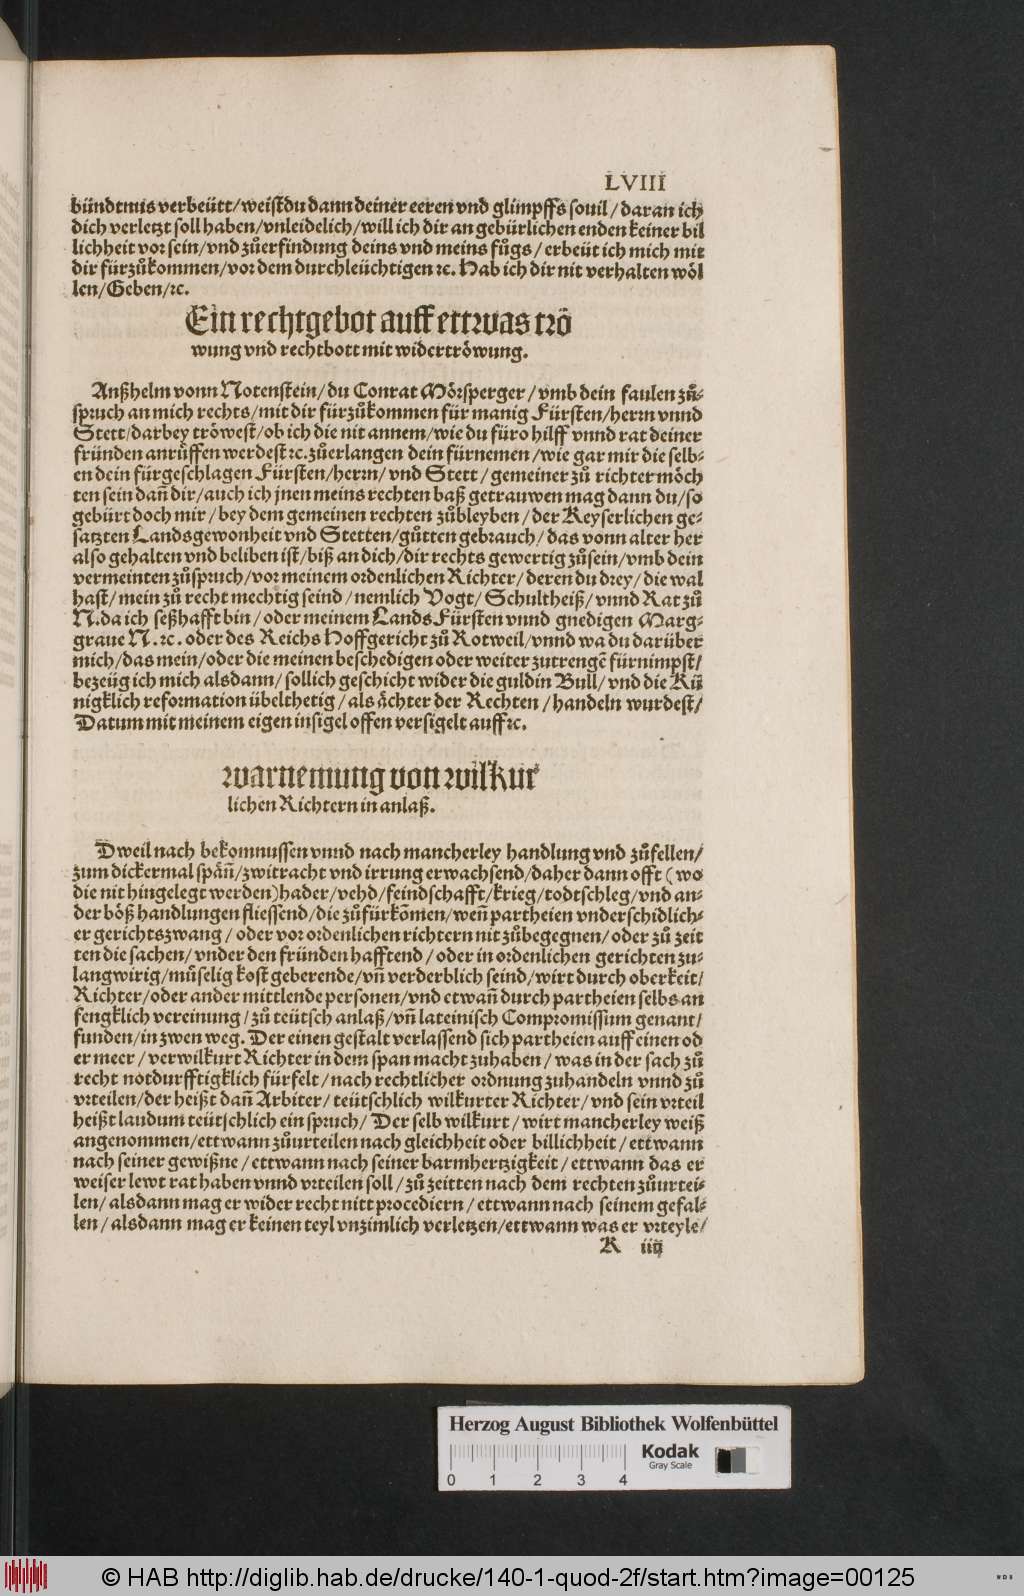 LVIII
bündtnus verbeütt/weistdu dann deiner eeren vnd glimpffs souil/daran ich
dich verletzt soll haben/vnleidelich/will ich dir an gebürlichen enden keiner bil
lichheit vor sein/vnd zůerfindung deins vnd meins fůgs/erbeüt ich mich mit
dir fürzůkommen/vor dem durchleüchtigen ꝛc. Hab ich dir nit verhalten wöl
len/Geben/ꝛc.
Ein rechtgebot auff ettwas trö
wung vnd rechtbott mit widertröwung.
Anßhelm vonn Notenstein/du Conrat Mörsperger/vmb dein faulen zů⸗
spruch an mich rechts/mit dir fürzůkommen für manig Fürsten/herrn vnnd
Stett/darbey tröwest/ob ich die nit annem/wie du füro hilff vnnd rat deiner
fründen anrůffen werdest ꝛc. zůerlangen dein fürnemen/wie gar mir die selb⸗
en dein fürgeschlagen Fürsten/herrn/vnd Stett/gemeiner zů richter möch
ten sein dañ dir/auch ich jnen meins rechten baß getrauwen mag dann du/so
gebürt doch mir/bey dem gemeinen rechten zůbleyben/der Keyserlichen ge⸗
satzten Landsgewonheit vnd Stetten/gůtten gebrauch/das vonn alter her
also gehalten vnd beliben ist/biß an dich/dir rechts gewertig zůsein/vmb dein
vermeinten zůspruch/vor meinem ordenlichen Richter/deren du drey/die wal
hast/mein zů recht mechtig seind/nemlich Vogt/Schultheiß/vnnd Rat zů
N. da ich seßhafft bin/oder meinem Lands Fürsten vnnd gnedigen Marg⸗
graue N. ꝛc. oder des Reichs Hoffgericht zů Rotweil/vnnd wa du darüber
mich/das mein/oder die meinen beschedigen oder weiter zutrengẽ fürnimpst/
bezeüg ich mich alsdann/sollich geschicht wider die guldin Bull/vnd die Kü
nigklich reformation übelthetig/als ächter der Rechten/handeln wurdest/
Datum mit meinem eigen insigel offen versigelt auff ꝛc.
warnemung von wilkur
lichen Richtern in anlaß.
Dweil nach bekomnussen vnnd nach mancherley handlung vnd zůfellen/
zum dickermal spåñ/zwitracht vnd irrung erwachsend/daher dann offt (wo
die nit hingelegt werden) hader/vehd/feindschafft/krieg/todtschleg/vnd an⸗
der bößhandlungen fliessend/die zůfürkõmen/weñ partheien vnderschidlich⸗
er gerichtszwang/oder vor ordenlichen richtern nit zůbegegnen/oder zů zeit
ten die sachen/vnder den fründen hafftend/oder in ordenlichen gerichten zu⸗
langwirig/můselig kost geberende/vñ verderblich seind/wirt durch oberkeit/
Richter/oder ander mittlende personen/vnd etwañ durch partheien selbs an
fengklich vereinung/zů teütsch anlaß/vñ lateinisch Compromissum genant/
funden/in zwen weg. Der einen gestalt verlassend sich partheien auff einen od
er meer/verwilkurt Richter in dem span macht zuhaben/was in der sach zů
recht notdurfftigklich fürfelt/nach rechtlicher ordnung zuhandeln vnnd zů
vrteilen/der heißt dañ Arbiter/teütschlich wilkurter Richter/vnd sein vrteil
heißt laudum teütschlich ein spruch/Der selb wilkurt/wirt mancherley weiß
angenommen/ettwann zůurteilen nach gleichheit oder billichheit/ettwann
nach seiner gewißne/ettwann nach seiner barmhertzigkeit/ettwann das er
weiser lewt rat haben vnnd vrteilen soll/zů zeitten nach dem rechten zůurtei⸗
len/alsdann mag er wider recht nitt procediern/ettwann nach seinem gefal⸗
len/alsdann mag er keinen teyl vnzimlich verletzen/ettwann was er vrteyle/
K iiij
Herzog August Bibliothek Wolfenbüttel
Kodak
Gray Scale
0 1 2 3 4
© HAB http://diglib.hab.de/drucke/140-1-quod-2f/start.htm?image=00125